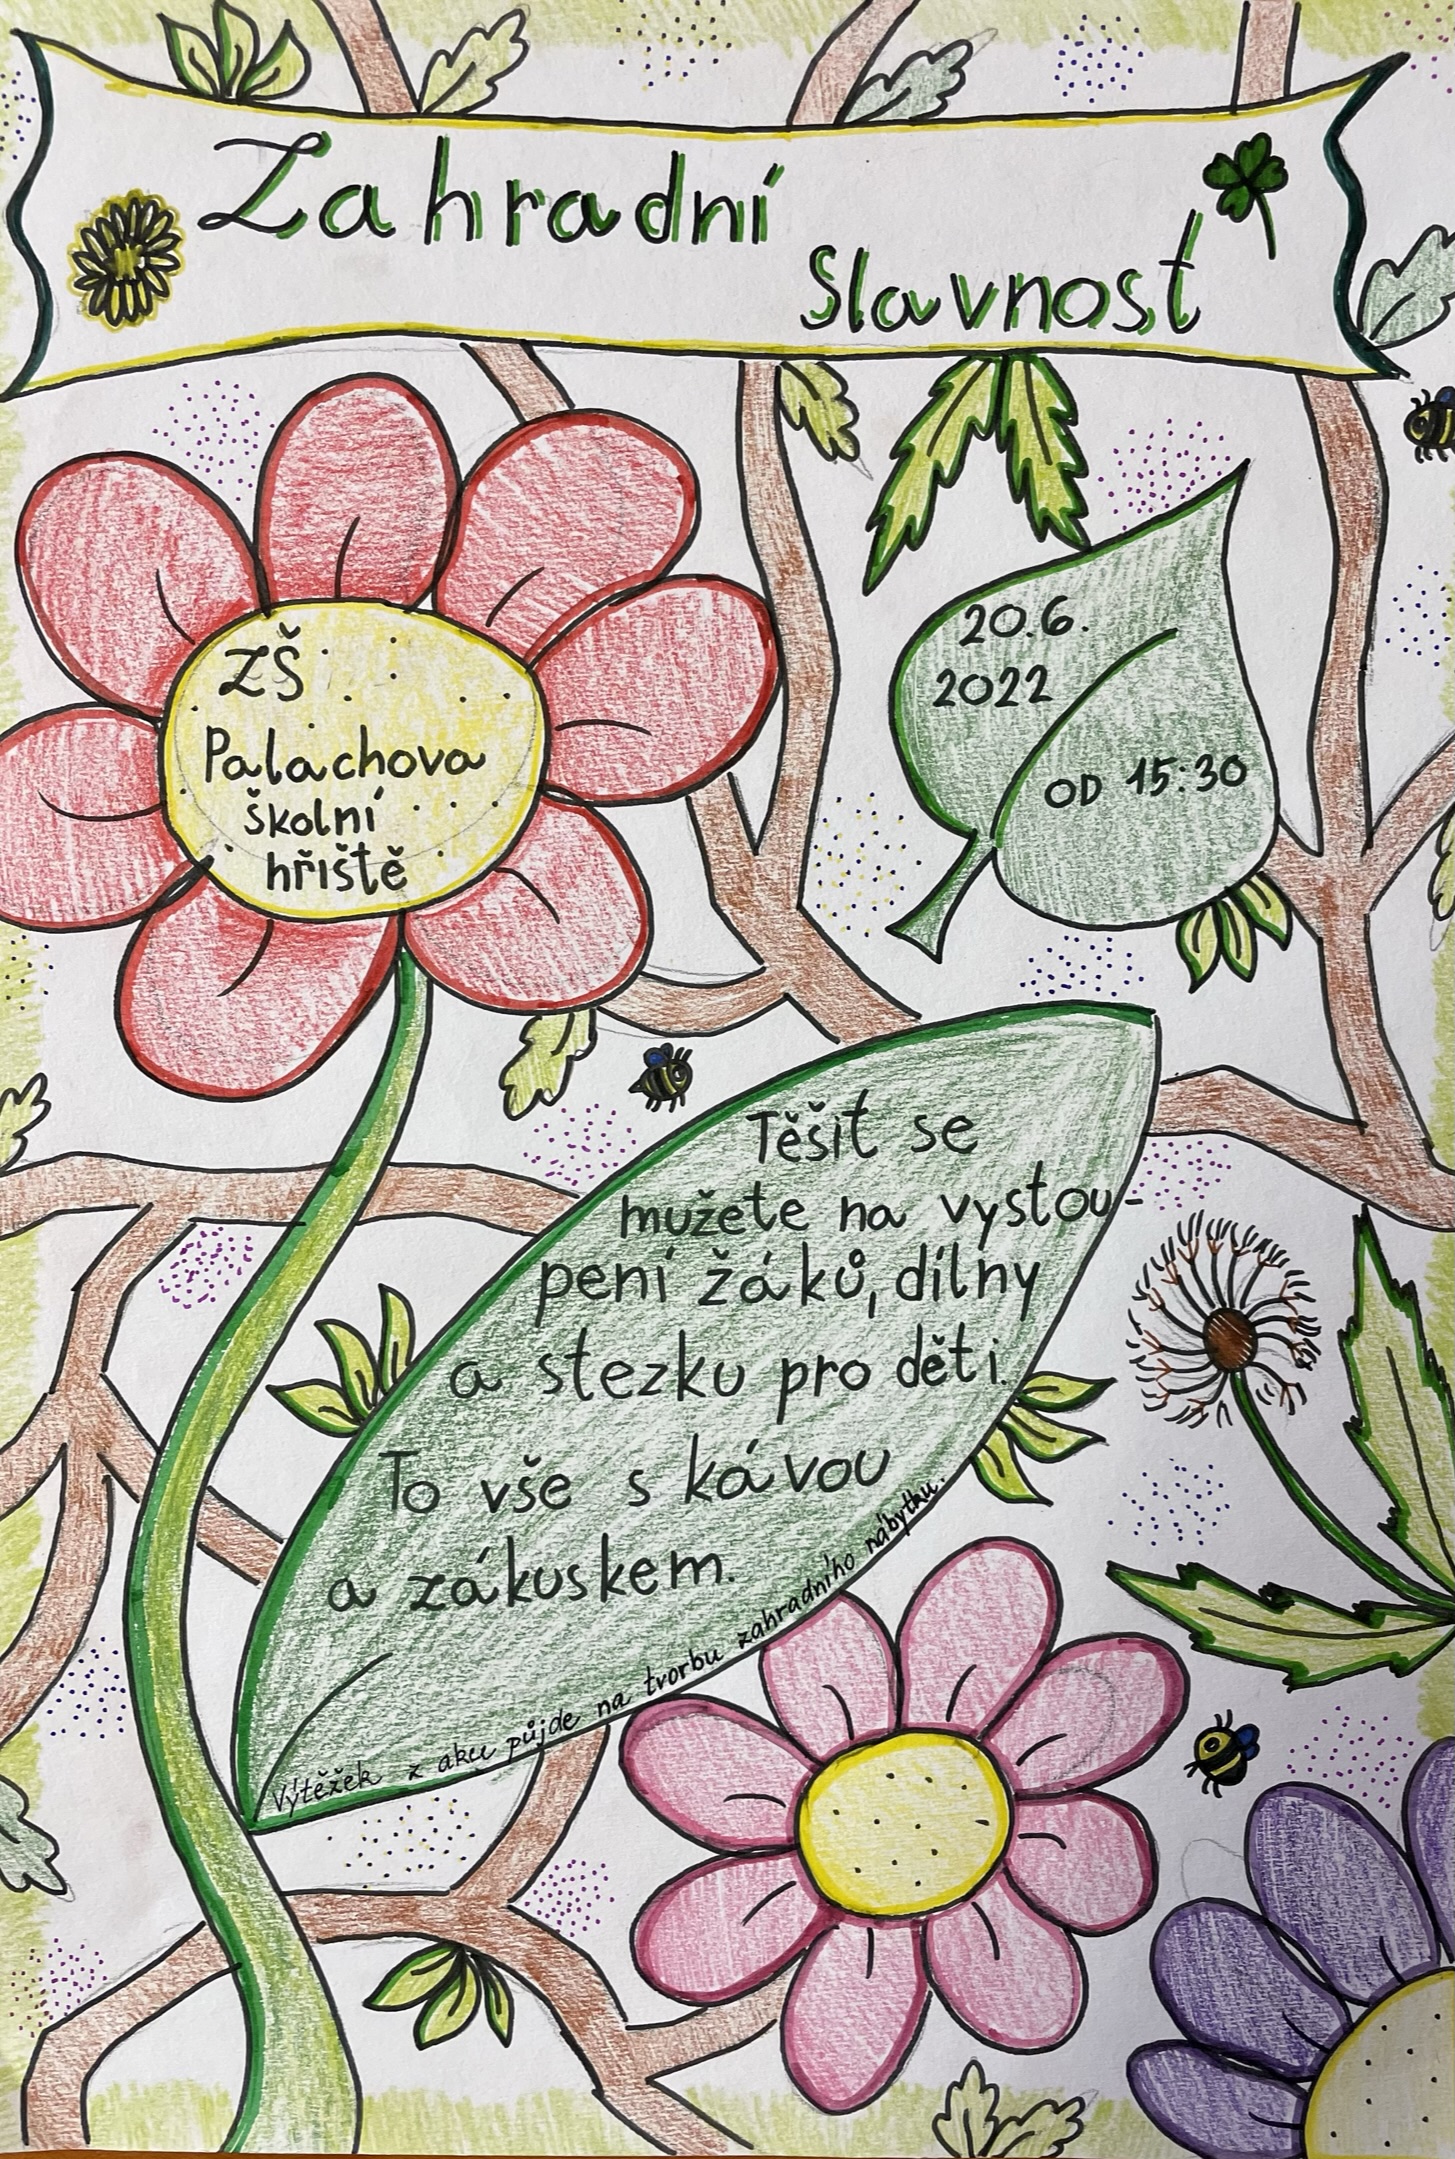 Zahradní
slavnost
ZŠ
Palachova
školní
hřiště
20.6.
2022
OD 15:30
Těšit se
mužete na vystou-
pení žáků, dílny
a stezku pro děti.
To vše s kávou
a zákuskem.
Výtěžek z akce půjde na tvorbu zahradního nábytku.